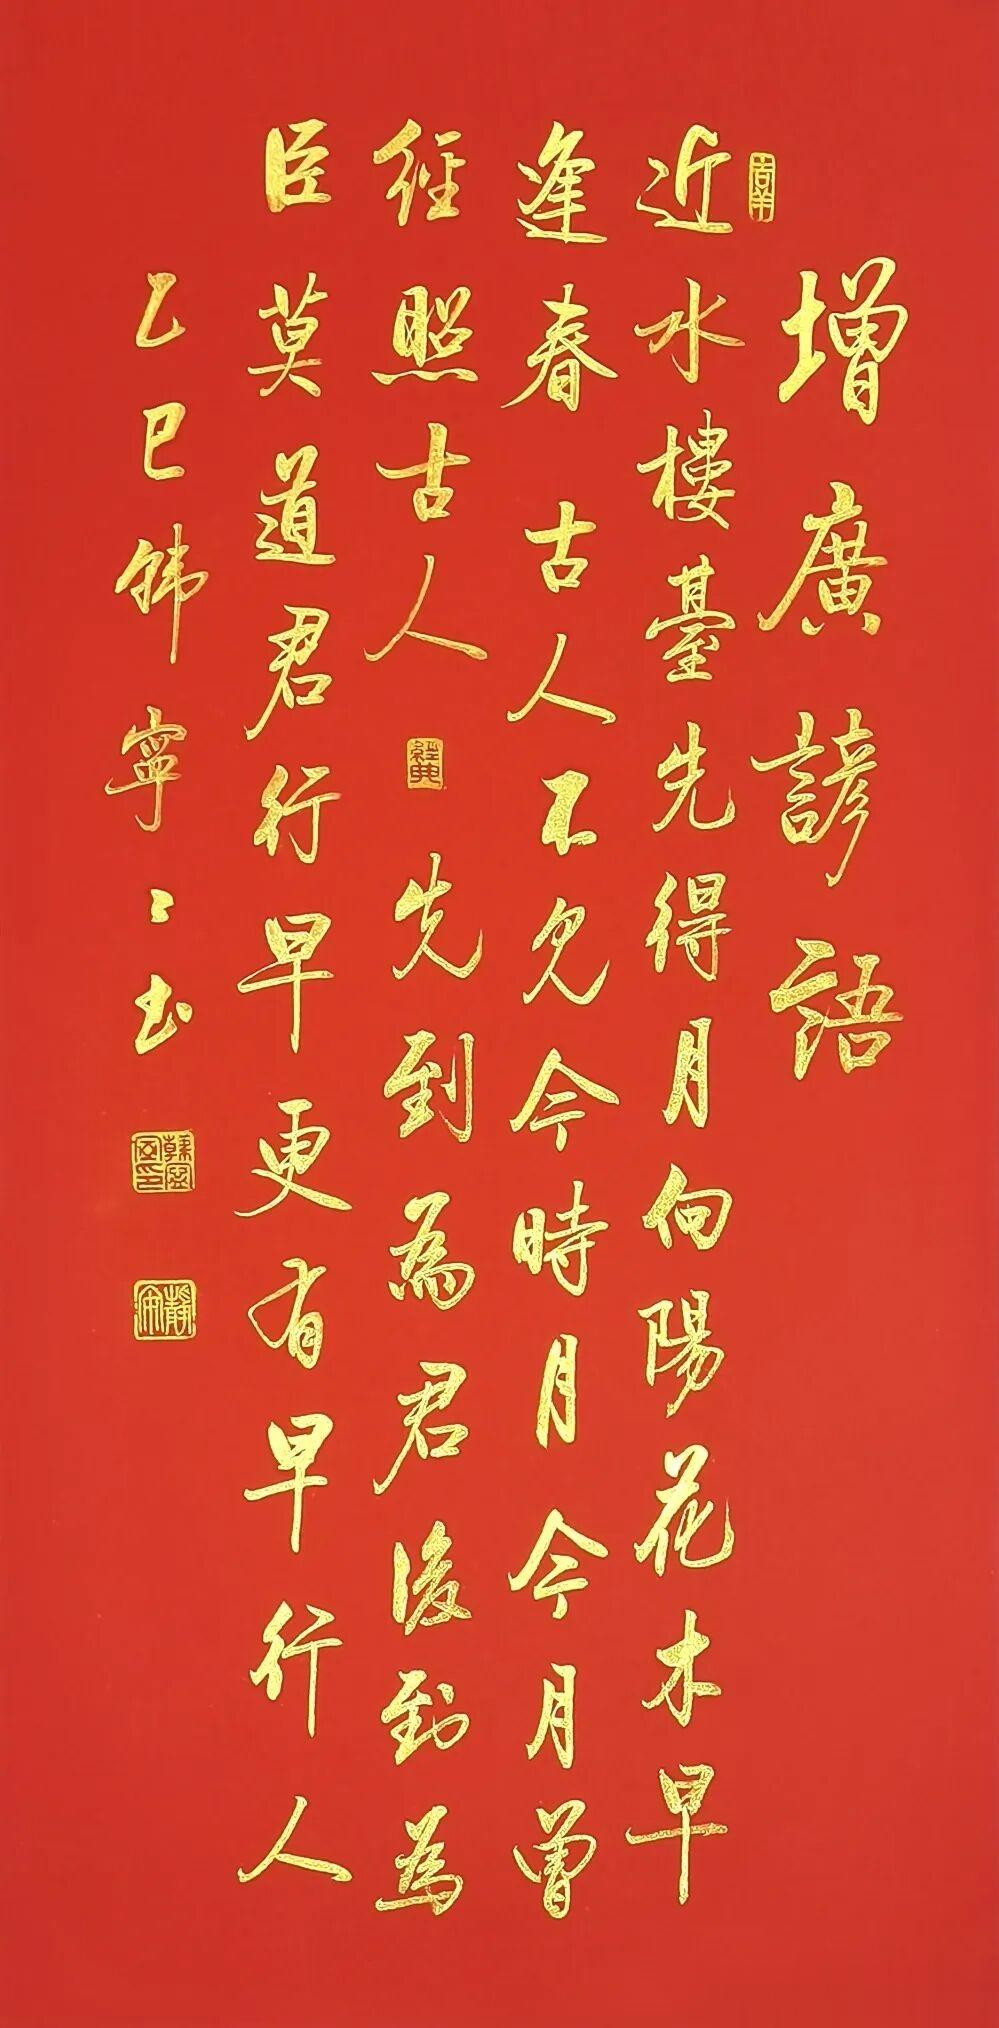 增廣諺語
近水樓臺先得月向陽花木早
逢春古人不見今時月今月曾
經照古人先到為君後到為
臣莫道君行早更有早行人
乙巳韩寧寧書
經典